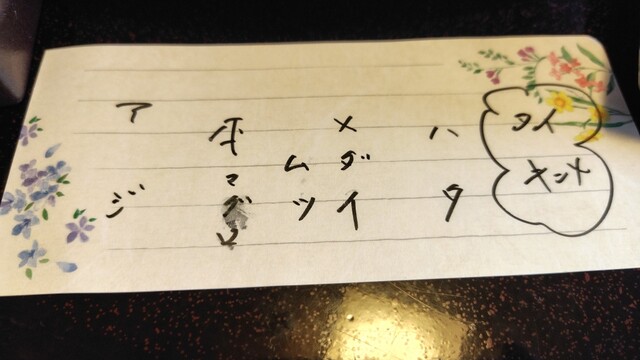 タイ
キンメ
ハタ
メダイ
ムツ
本マグロ
アジ